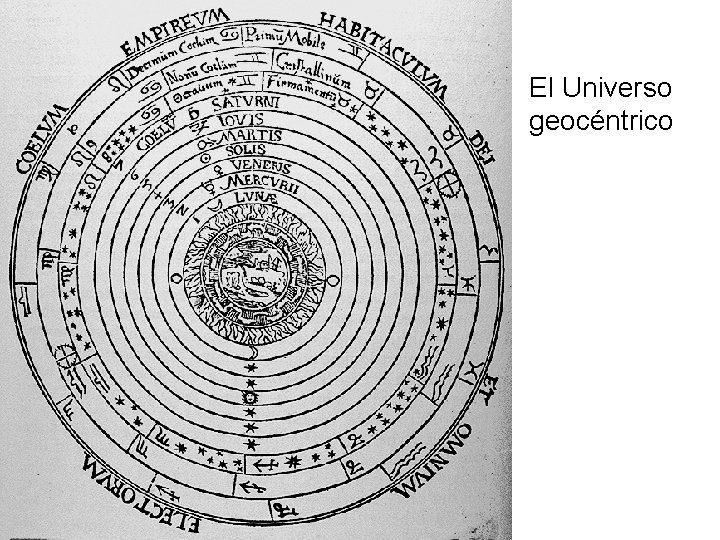 COELVM EMPIREVM HABITACVLVM DEI ET OMNIVM ELECTORVM
Decimum Coelum Primũ Mobile
Nonũ Coelum Cristallinũm
Octauum Firmamentũ
COELV SATVRNI
IOVIS
MARTIS
SOLIS
VENERIS
MERCVRII
LVNÆ
7
6
5
4
1
El Universo
geocéntrico